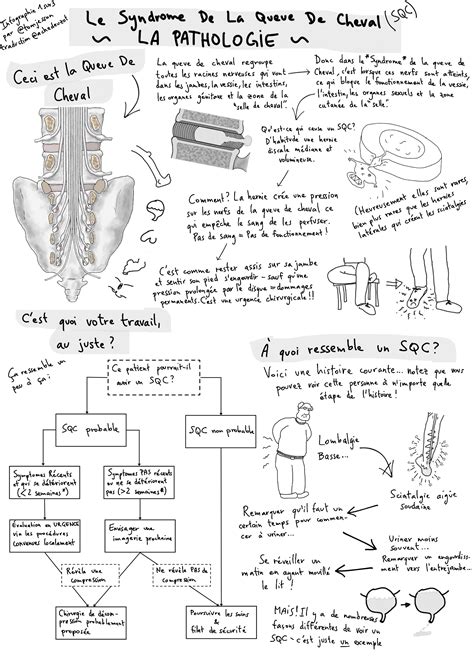 Infographie 1 sur 3
par @tomjesson
Traduction @
Le Syndrome De La Queue De Cheval (SQC)
~ LA PATHOLOGIE ~
Ceci est la Queue De
Cheval
La queue de cheval regroupe
toutes les racines nerveuses qui vont
dans les jambes, la vessie, les intestins,
les organes génitaux et la zone de la
"selle de cheval".
Donc dans le "Syndrome" de la queue de
Cheval, c'est lorsque ces nerfs sont atteints,
ce qui bloque le fonctionnement de la vessie,
l'intestin, les organes sexuels et la zone
cutanée de la "selle".
Qu'est-ce qui cause un SQC?
D'habitude une hernie
discale médiane et
volumineuse.
Comment? La hernie crée une pression
sur les nerfs de la queue de cheval ce
qui empêche le sang de les perfuser.
Pas de sang = Pas de fonctionnement!
(Heureusement elles sont rares,
bien plus rares que les hernies
latérales qui créent les sciatalgies
C'est comme rester assis sur sa jambe
et sentir son pied s'engourdir - sauf qu'une
pression prolongée par le disque = dommages
permanents. C'est une urgence chirurgicale!!
C'est quoi votre travail,
au juste?
Ça ressemble un
peu à ça:
Ce patient pourrait-il
avoir un SQC?
SQC probable
SQC non probable
Symptomes Récents
et qui se détériorent
(≤2 semaines*)
Symptomes PAS récents
ou ne se détériorent
pas (>2 semaines*)
Évaluation en URGENCE
via les procédures
convenues localement
Envisager une
imagerie prochaine
Révèle une
compression
Ne révèle PAS de
compression
Chirurgie de décom-
pression probablement
proposée
Poursuivre les soins
& filet de sécurité
À quoi ressemble un SQC?
Voici une histoire courante... notez que vous
pouvez voir cette personne à n'importe quelle
étape de l'histoire!
Lombalgie
Basse...
Sciatalgie aigüe
soudaine
Remarquer qu'il faut un
certain temps pour commen-
cer à uriner...
Uriner moins
souvent...
Remarquer un engourdisse-
ment vers l'entrejambe...
Se réveiller un
matin en ayant mouillé
le lit!
MAIS! Il y a de nombreuses
façons différentes de voir un
SQC - c'est juste un exemple